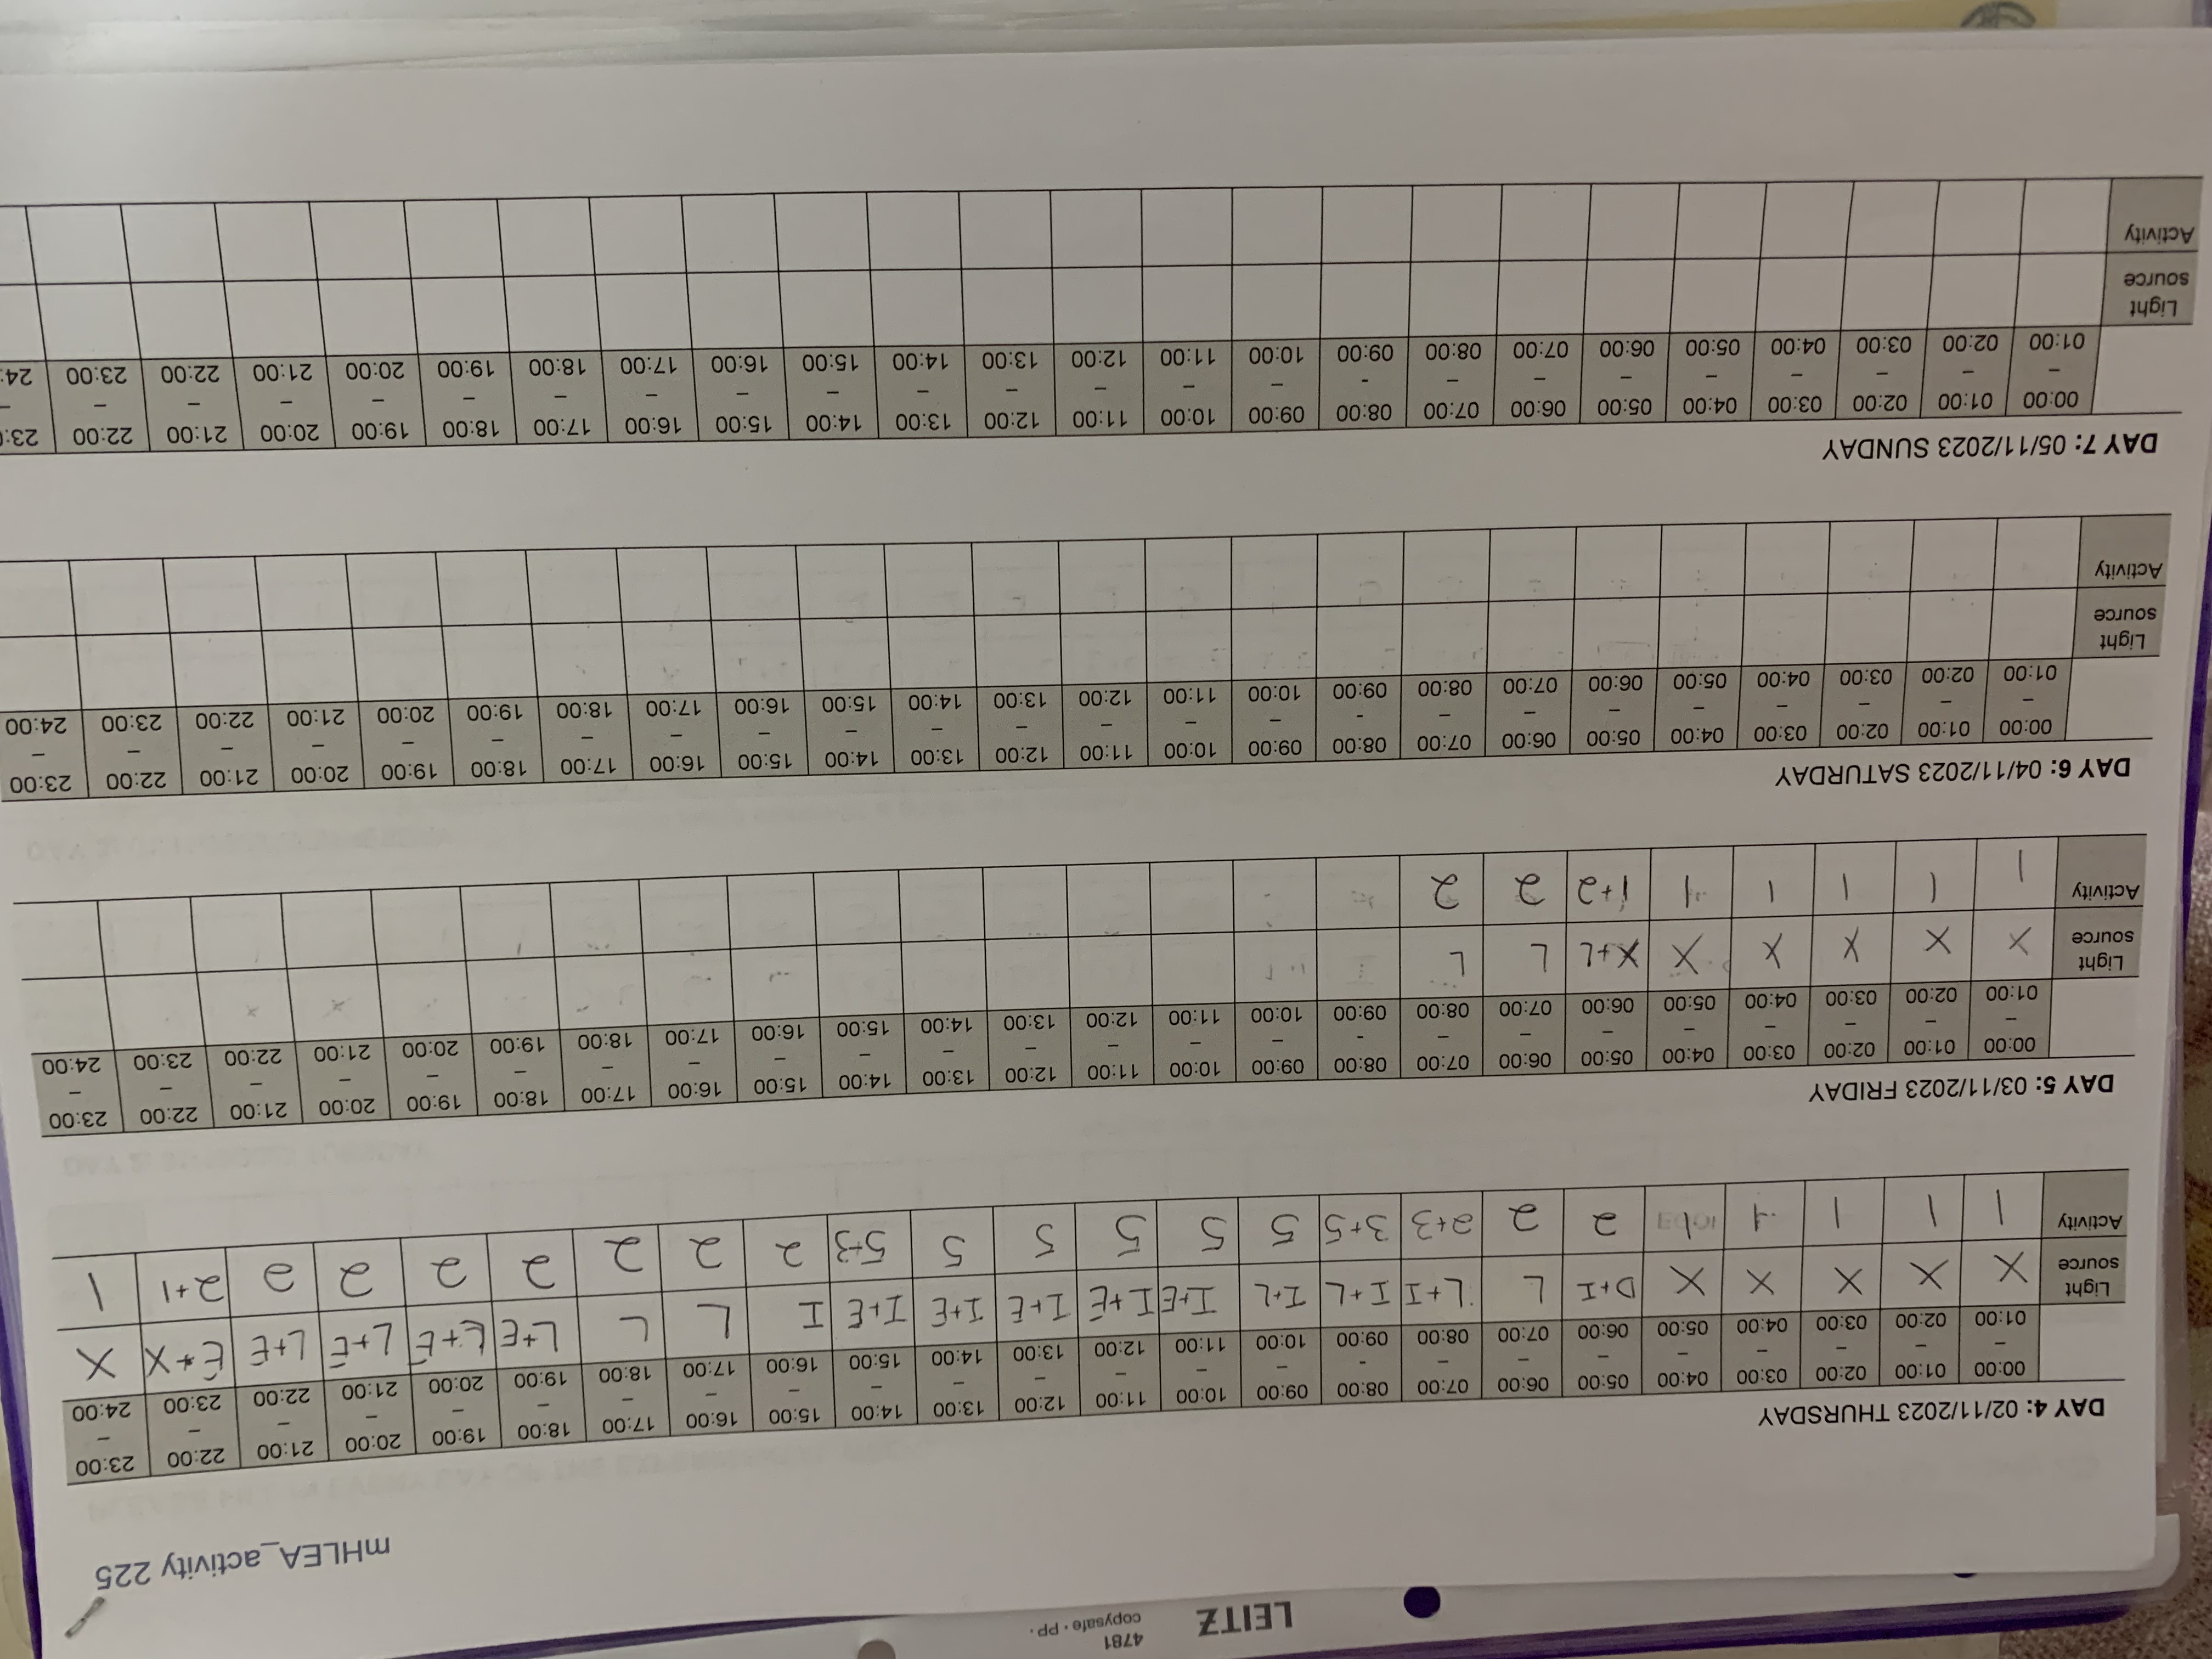 LEITZ
4781
copysafe · PP ·
mHLEA_activity 225
DAY 4: 02/11/2023 THURSDAY
00:00 – 01:00 01:00 – 02:00 02:00 – 03:00 03:00 – 04:00 04:00 – 05:00 05:00 – 06:00 06:00 – 07:00 07:00 – 08:00 08:00 - 09:00 09:00 – 10:00 10:00 – 11:00 11:00 – 12:00 12:00 – 13:00 13:00 – 14:00 14:00 – 15:00 15:00 – 16:00 16:00 – 17:00 17:00 – 18:00 18:00 – 19:00 19:00 – 20:00 20:00 – 21:00 21:00 – 22:00 22:00 – 23:00 23:00 – 24:00
Light source X X X X X D+I L L+I I+L I+L I+E I+E I+E I+E I+E I L L L+E L+E L+E L+E E+X X
Activity 1 1 1 1 2 2 2+3 3+5 5 5 5 5 5 5+3 2 2 2 2 2 2 2 2+1 1
DAY 5: 03/11/2023 FRIDAY
00:00 – 01:00 01:00 – 02:00 02:00 – 03:00 03:00 – 04:00 04:00 – 05:00 05:00 – 06:00 06:00 – 07:00 07:00 – 08:00 08:00 - 09:00 09:00 – 10:00 10:00 – 11:00 11:00 – 12:00 12:00 – 13:00 13:00 – 14:00 14:00 – 15:00 15:00 – 16:00 16:00 – 17:00 17:00 – 18:00 18:00 – 19:00 19:00 – 20:00 20:00 – 21:00 21:00 – 22:00 22:00 – 23:00 23:00 – 24:00
Light source X X X X X X+L L L
Activity 1 1 1 1 1 1+2 2 2
DAY 6: 04/11/2023 SATURDAY
00:00 – 01:00 01:00 – 02:00 02:00 – 03:00 03:00 – 04:00 04:00 – 05:00 05:00 – 06:00 06:00 – 07:00 07:00 – 08:00 08:00 - 09:00 09:00 – 10:00 10:00 – 11:00 11:00 – 12:00 12:00 – 13:00 13:00 – 14:00 14:00 – 15:00 15:00 – 16:00 16:00 – 17:00 17:00 – 18:00 18:00 – 19:00 19:00 – 20:00 20:00 – 21:00 21:00 – 22:00 22:00 – 23:00 23:00 – 24:00
Light source
Activity
DAY 7: 05/11/2023 SUNDAY
00:00 – 01:00 01:00 – 02:00 02:00 – 03:00 03:00 – 04:00 04:00 – 05:00 05:00 – 06:00 06:00 – 07:00 07:00 – 08:00 08:00 - 09:00 09:00 – 10:00 10:00 – 11:00 11:00 – 12:00 12:00 – 13:00 13:00 – 14:00 14:00 – 15:00 15:00 – 16:00 16:00 – 17:00 17:00 – 18:00 18:00 – 19:00 19:00 – 20:00 20:00 – 21:00 21:00 – 22:00 22:00 – 23:00
Light source
Activity